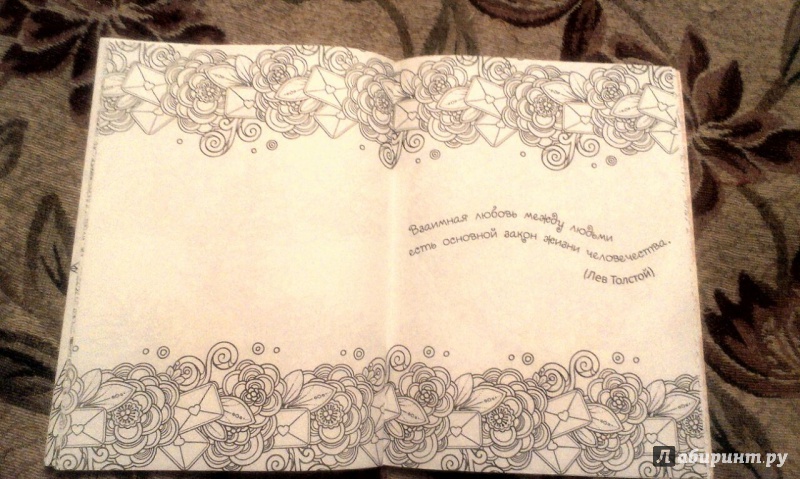 Взаимная любовь между людьми
есть основной закон жизни человечества.
(Лев Толстой)
Лабиринт.ру